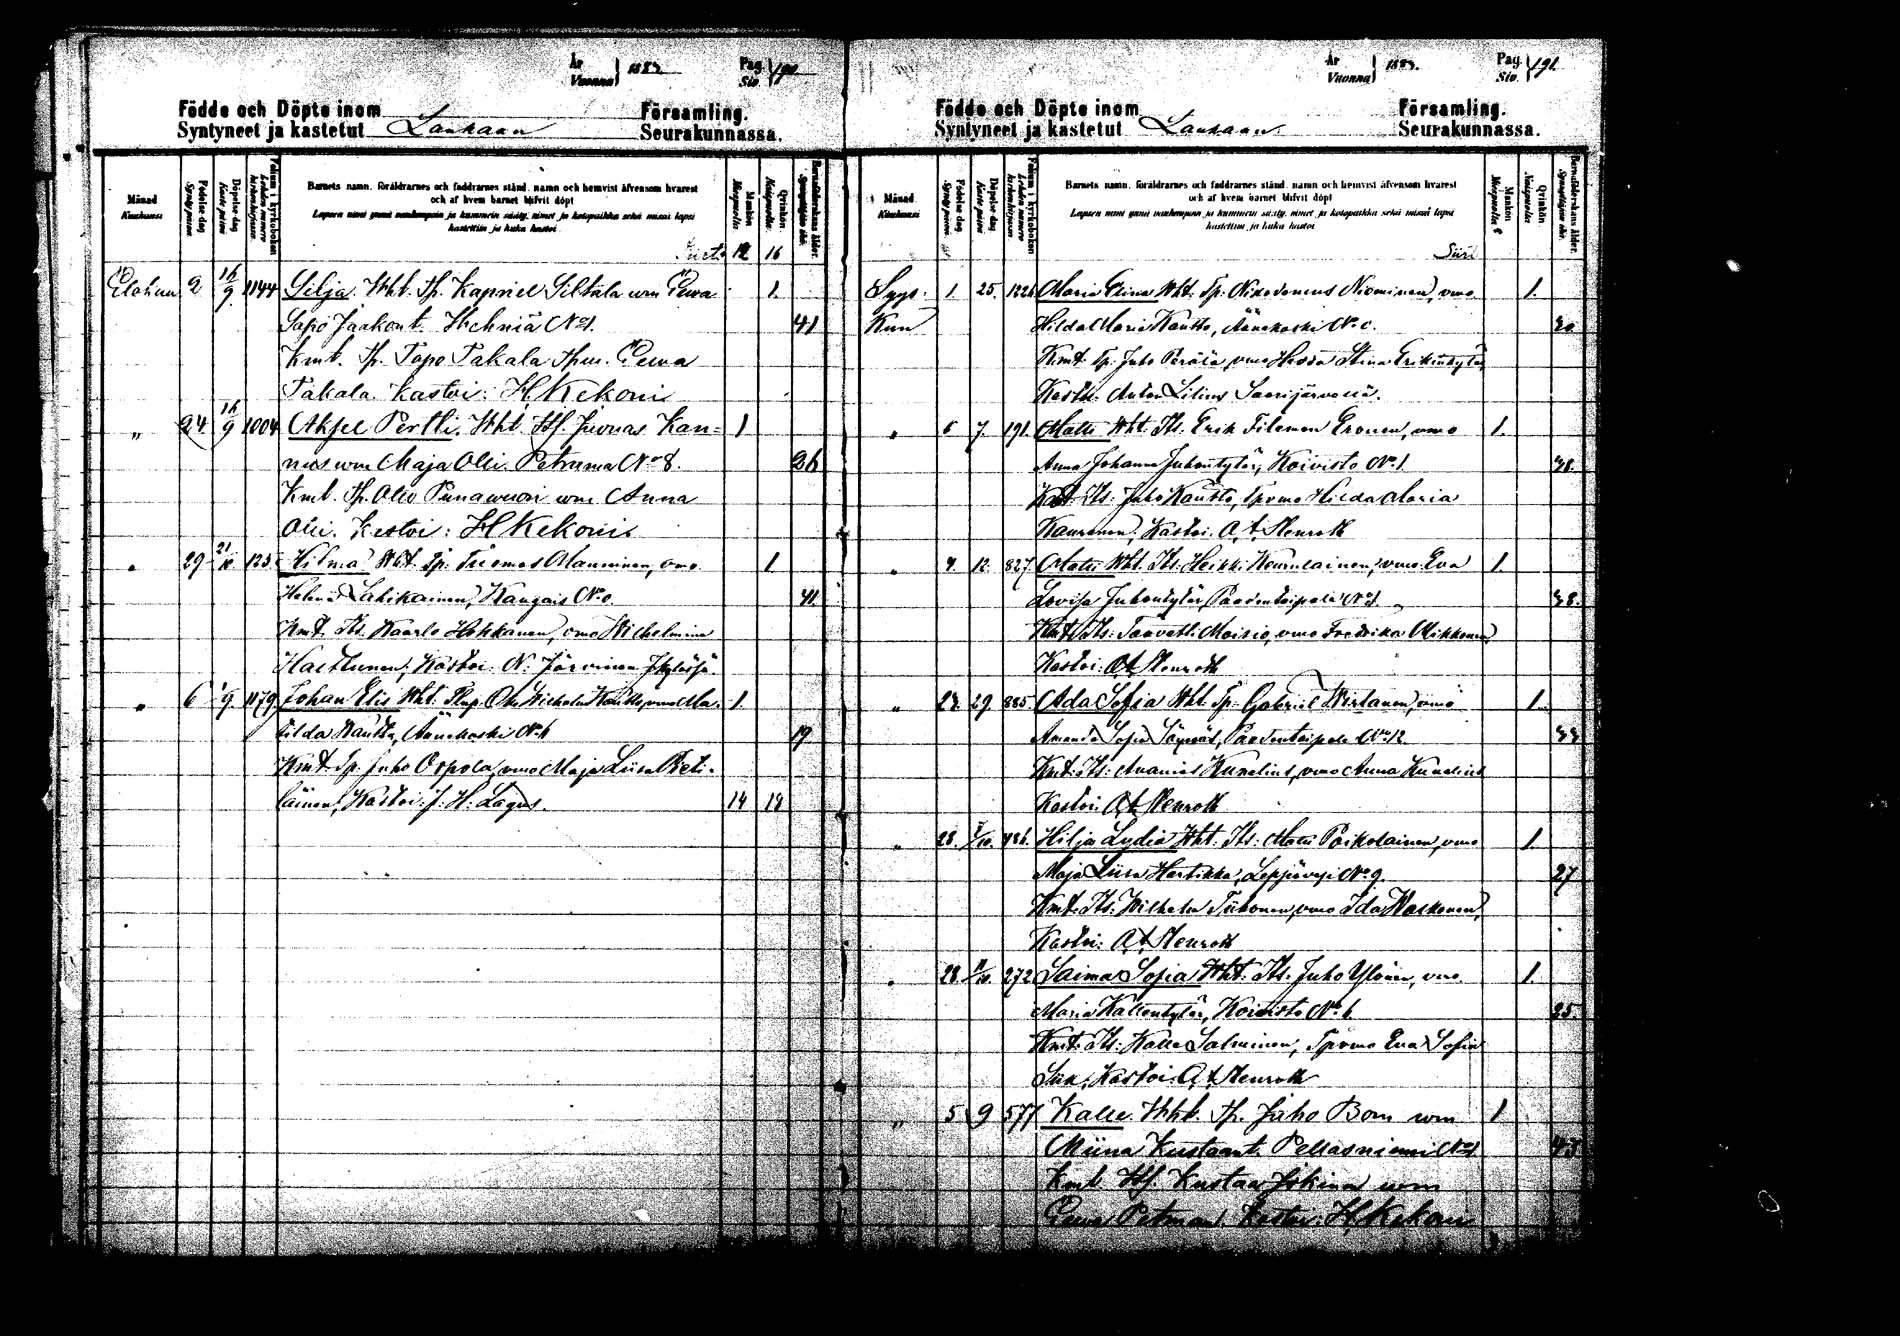 År
Vuonna } 1883.
Pag.
Siv. } 190
Födde och Döpte inom
Syntyneet ja kastetut Laukaan
Församling.
Seurakunnassa.
Månad
Kuukausi
Födelse dag
Syntymäpäivä
Döpelse-dag
Kaste päivä
Folium i kyrkoboken
Barnets namn, föräldrarnes och faddrarnes stånd, namn och hemvist äfvensom hvarest
och af hvem barnet blifvit döpt
Lapsen nimi ynnä vanhempain ja kummein sääty, nimet ja kotopaikka sekä missä lapsi
kastettiin ja kuka kastoi
Mankön
Miespuolia
Qvinkön
Naispuolia
Barnaföderskans ålder.
12 16
Elokuu 2 16/9 1144 Silja. Wht. Tp. Kapriel Siltala wm Eewa 1.
Sapo Jaakont. Wehniä No 1. 41
Kmt. Tp. Topo Takala Tpm. Eewa
Takala. Kastoi: H Kekoni
„ 24 16/9 1004 Aksel Pertti. Wht. Itl. Juonas Kan= 1
nus wm Maja Olli. Petruma No 8. 26
Kmt. Tp. Olli Punawuori wm. Anna
Olli. Kastoi: H Kekoni
„ 29 21/10 125. Hilma Wht. Tp. Tuomas Manninen, vmo 1.
Helena Lahikainen, Kangas No 0. 41.
Kmt. Its. Kaarlo Hokkanen, vmo Wilhelmina
Hartunen, Kastoi: N. Järvinen Jkylässä
„ 6 1/9 1179 Johan Elis Wht. Wilhelm Kautto, vmo Ma- 1.
tilda Kautto, Äänekoski No 6 19
Kmt. Tp. Juho Orpola, vmo Maja Liisa Pieti-
läinen, Kastoi: J. H. Lagus. 14 18
År
Vuonna } 1883.
Pag.
Siv. } 191.
Födde och Döpte inom
Syntyneet ja kastetut Laukaan.
Församling.
Seurakunnassa.
Månad
Kuukausi
Födelse dag
Syntymäpäivä
Döpelse-dag
Kaste päivä
Folium i kyrkoboken
Barnets namn, föräldrarnes och faddrarnes stånd, namn och hemvist äfvensom hvarest
och af hvem barnet blifvit döpt
Lapsen nimi ynnä vanhempain ja kummein sääty, nimet ja kotopaikka sekä missä lapsi
kastettiin ja kuka kastoi
Mankön
Miespuolia
Qvinkön
Naispuolia
Barnaföderskans ålder.
Siirt
Syys- 1. 25. Maria Elina Wht. Tp. Nikodemus Nieminen, vmo 1.
Kuu Hilda Maria Kautto, Äänekoski No 0. 30
Kmt. Tp. Juho Perälä, vmo Hedda Stina Erikintytär
Kastoi. Anton Lilius Saarijärvellä.
„ 6 7. 191. Matti Wht. Its. Erik Fileman Eronen, vmo 1.
Anna Johanna Juhontytär, Koivisto No 1. 38.
Kmt. Its: Juho Kautto, Tpvmo Hilda Maria
Kauronen, Kastoi. A. A. Stenroth
„ 9. 12. 827 Matti Wht. Its. Heikki vmo Eva 1.
Lovisa Juhontytär, Paadentaipale No 1. 38.
Kmt. Its: Taavetti Moisio, vmo Fredrika Mikkonen
Kastoi: A. A. Stenroth
„ 23. 29. 885. Ada Sofia Wht. Tp. Gabriel Wirtanen, vmo 1.
Amanda Sofia Paadentaipale No 12. 33
Kmt. Its: Ananias Kunelius, vmo Anna Kunelius
Kastoi: A. A. Stenroth
„ 28. Hilja Lydia Wht. Its: Matti Paikolainen, vmo 1.
Maja Liisa Hartikka, Leppävesi No 9. 27
Kmt. Its: Wilhelm Tiihonen, vmo Ida Kaskonen,
Kastoi: A. A. Stenroth
„ 28. 272 Saima Sofia Wht. Its. Juho Ylönen, vmo 1.
Maria Kallentytär, Koivisto No 6. 25.
Kmt. Its: Kalle Salminen, Tpvmo Eva Sofia
Kastoi: A. A. Stenroth
„ 5 9 577 Kalle. Wht. Tp. Juho Bom wm 1
Miina Kustaant. Pellosniemi No 1. 43
Kmt. Itl. Kustaa wm
Eewa Petman. Kastoi: H Kekoni